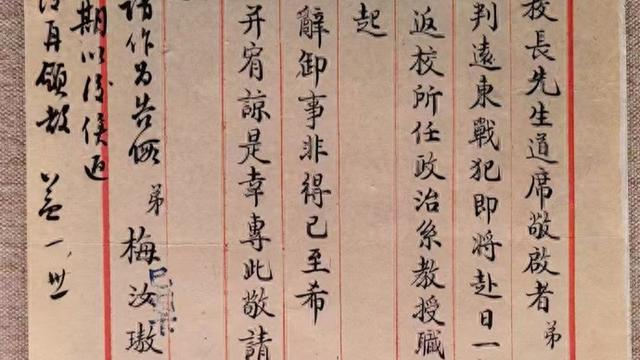 校長先生道席敬啟者 弟
判遠東戰犯即將赴日一
返校所任政治系教授職
起
辭卸事非得已至希
并宥諒是幸專此敬請
弟 梅汝璈
請作为告假
期以後俟返
再領教 益一、廿